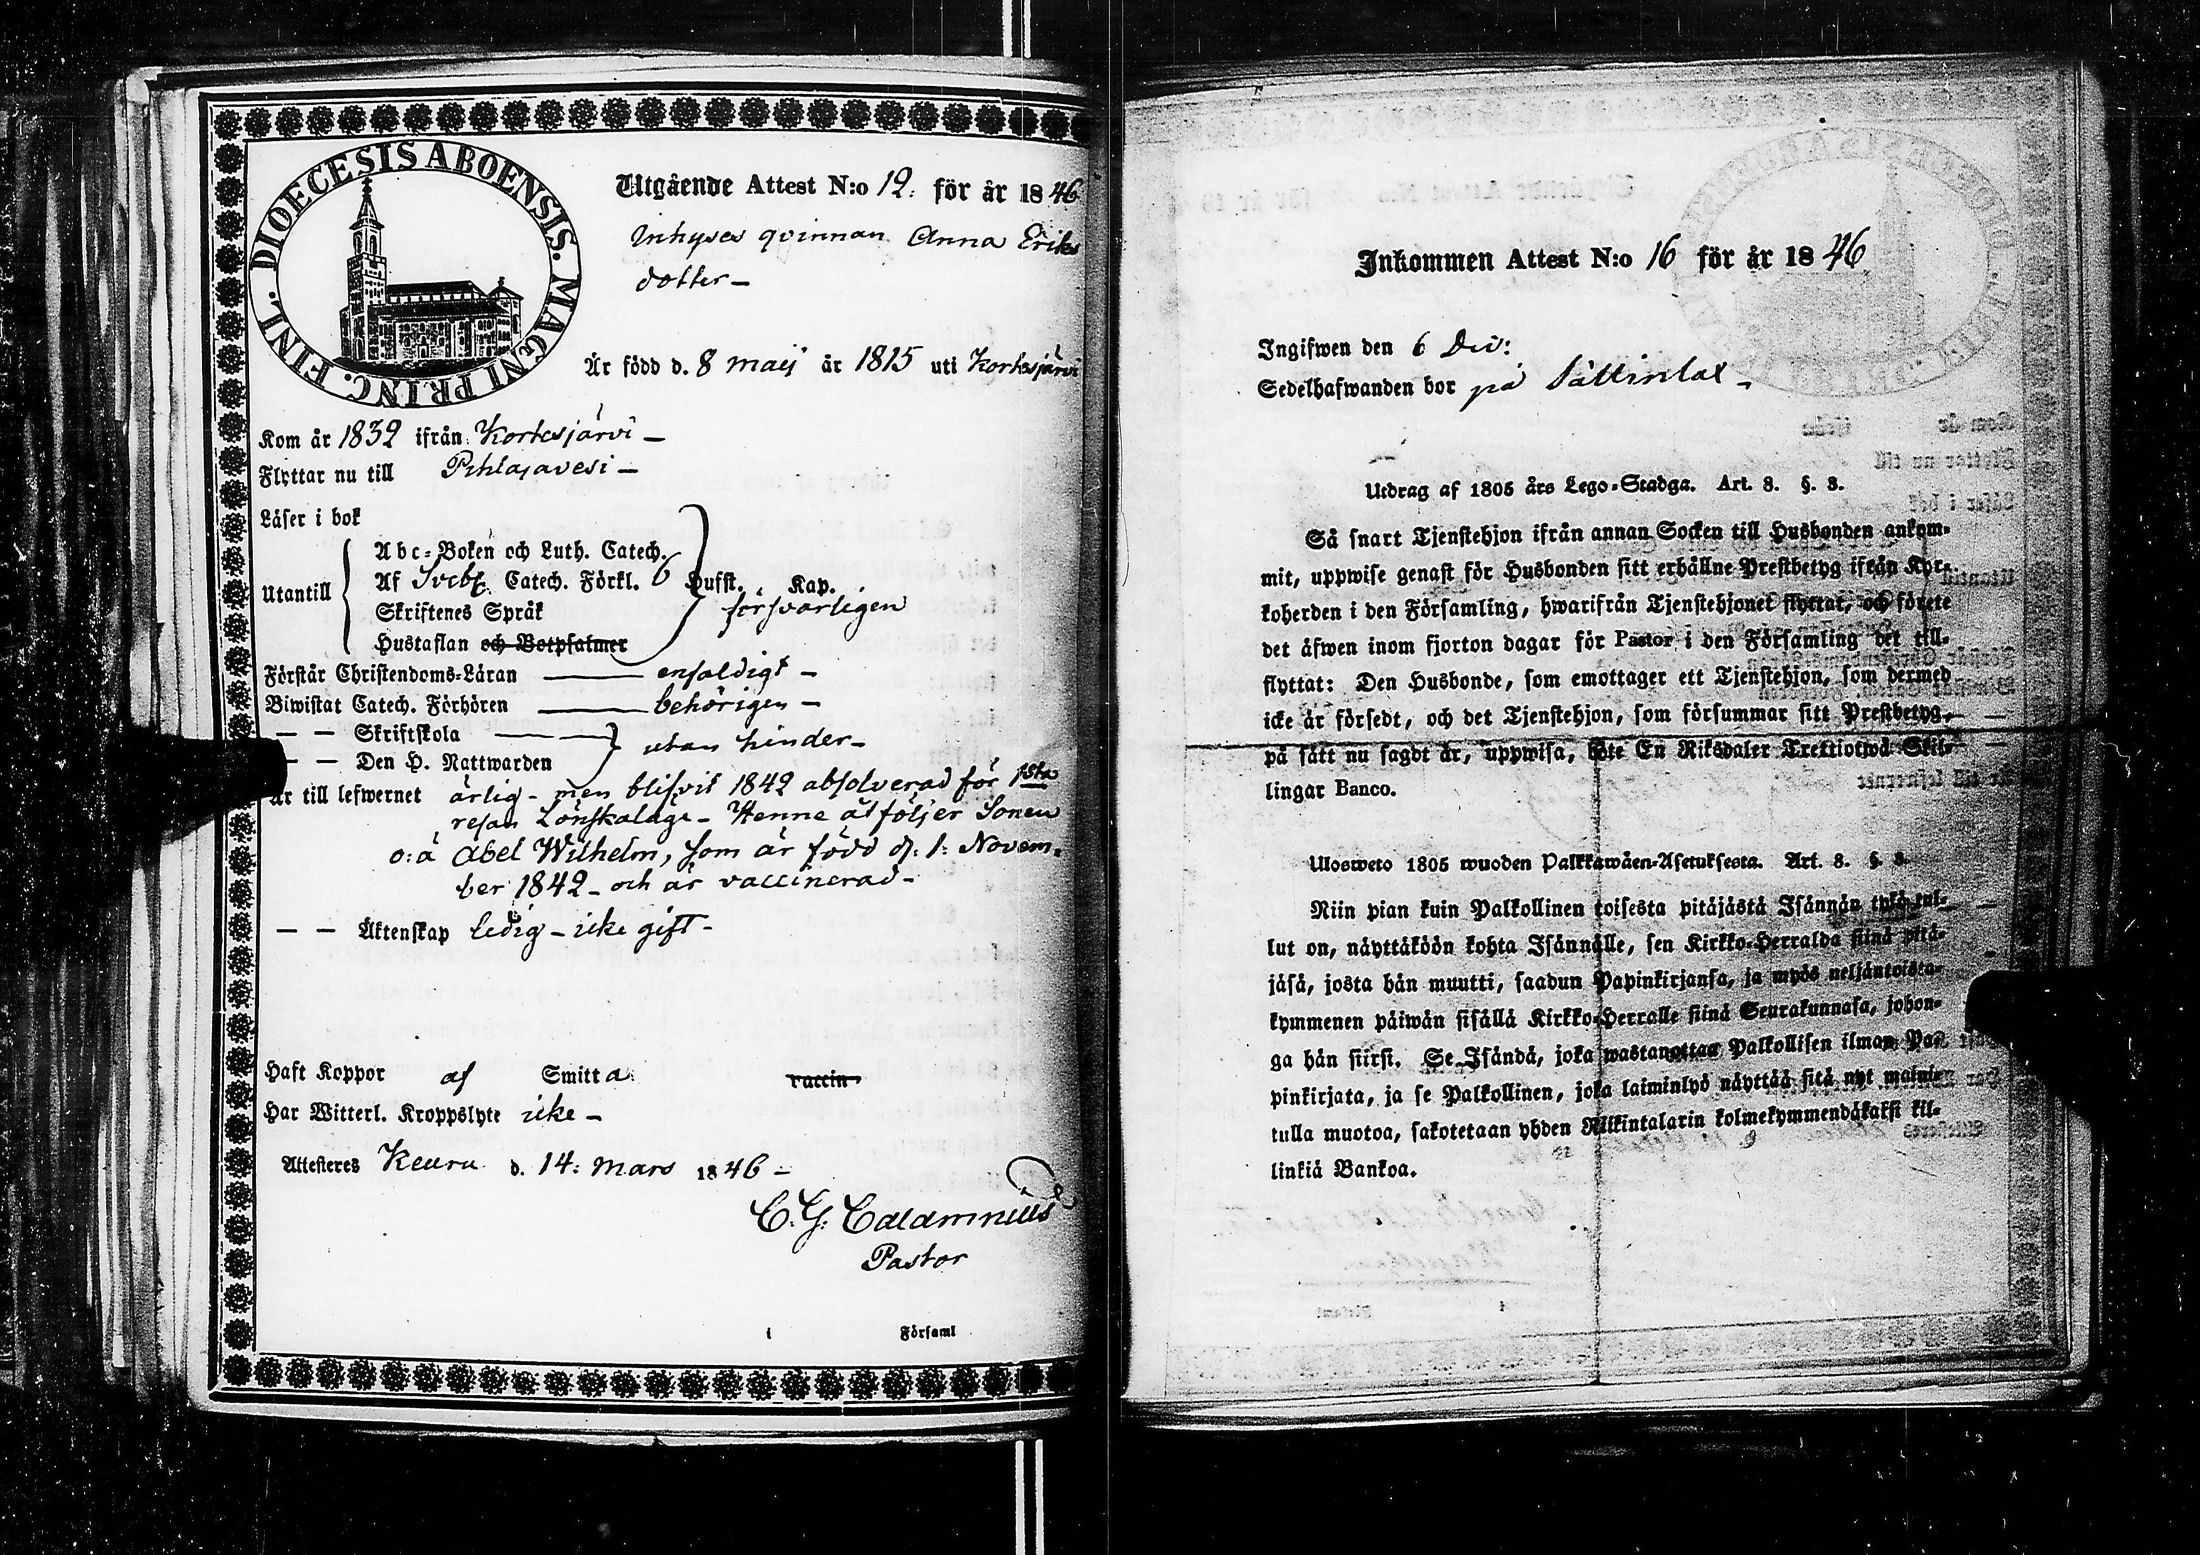 DIOECESIS ABOENSIS. MAGNI PRINC. FINL.
Utgående Attest N:o 12. för år 1846
Inhyses qvinnan Anna Eriks
dotter –
Är född d. 8 maij år 1815 uti Kortesjärvi
Kom år 1832 ifrån Kortesjärvi –
Flyttar nu till Pihlajavesi –
Läser i bok
Utantill
Abc-Boken och Luth. Catech.
Af Sveb. Catech. Förkl. 6 Hufst. Kap.
Skriftenes Språk försvarligen
Hustaflan och Botpsalmer
Förstår Christendoms-Läran enfaldigt –
Biwistat Catech. Förhören behörigen –
— — Skriftskola
— — Den H. Nattwarden utan hinder –
Är till lefwernet ärlig – men blifvit 1842 absolverad för 1sta
resan Lönskaläge – Henne åtföljer Sonen
o:ä Abel Wilhelm, som är född d. 1: Novem-
ber 1842 – och är vaccinerad –
— — Äktenskap ledig – icke gift –
Haft Koppor af Smitta vaccin
Har Witterl. Kroppslyte icke –
Attesteres Keuru d. 14: Mars 1846 –
C. G. Calamnius
Pastor
i Församl
Inkommen Attest N:o 16 för år 1846
Ingifwen den 6 Dec:
Sedelhafwanden bor på
Utdrag af 1805 års Lego-Stadga. Art. 8. §. 3.
Så snart Tjenstehjon ifrån annan Socken till Husbonden ankom-
mit, uppwise genast för Husbonden sitt erhållne Prestbetyg ifrån Kyr-
koherden i den Församling, hwarifrån Tjenstehjonet flyttat, och förete
det äfwen inom fjorton dagar för Pastor i den Församling det till-
flyttat: Den Husbonde, som emottager ett Tjenstehjon, som dermed
icke är försedt, och det Tjenstehjon, som försummar sitt Prestbetyg,
på sätt nu sagdt är, uppwisa, böte En Riksdaler Trettiotwå Skil-
lingar Banco.
Ulosweto 1805 wuoden Palkkawäen-Asetuksesta. Art. 8. §. 3.
Niin pian kuin Palkollinen toisesta pitäjästä Isännän tykö tul-
lut on, näyttäköön kohta Isännälle, sen Kirkko-Herralda siinä pitä-
jäsä, josta hän muutti, saadun Papinkirjansa, ja myös neljäntoista-
kymmenen päiwän sisällä Kirkko-Herralle siinä Seurakunnasa, johon-
ga hän siirsi. Se Isändä, joka wastanottaa Palkollisen ilman Pa-
pinkirjata, ja se Palkollinen, joka laiminlyö näyttää sitä nyt mainit-
tulla muotoa, sakotetaan yhden Riikintalarin kolmekymmendäkaksi kil-
linkiä Bankoa.